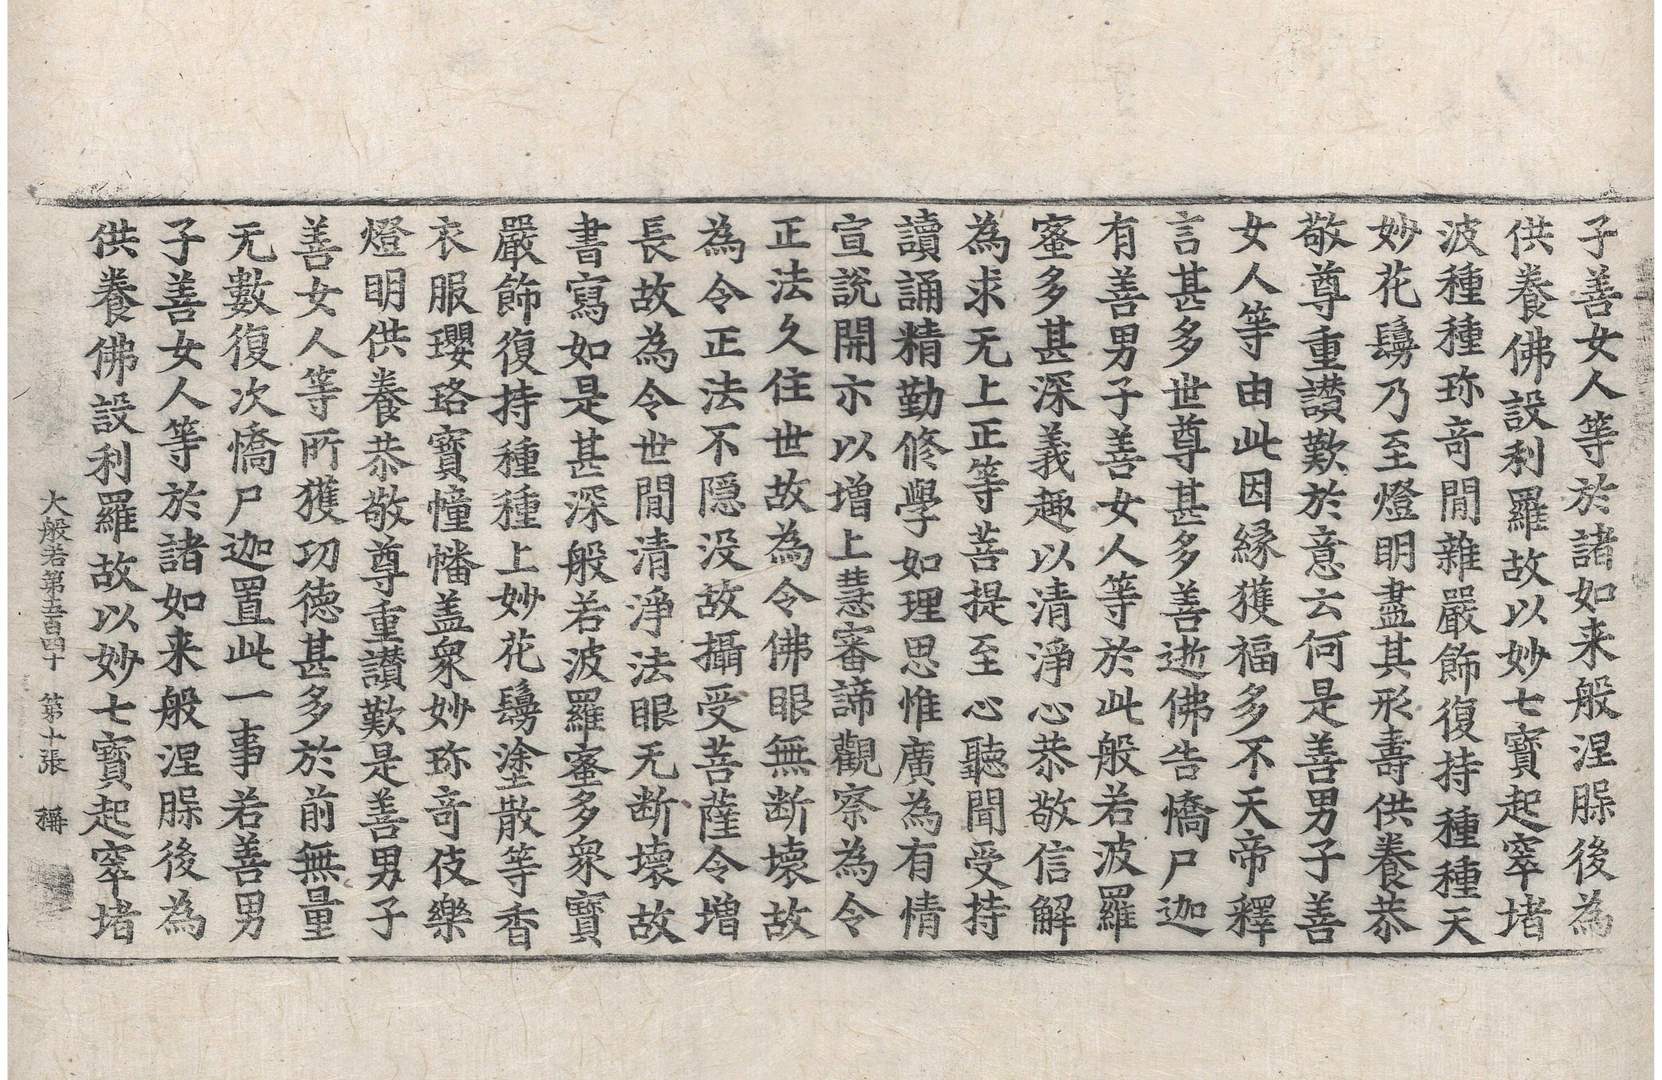 子善女人等於諸如来般涅縏後為
供養佛設利羅故以妙七寶起窣堵
波種種珎竒閒雜嚴飾復持種種天
妙花鬘乃至燈明盡其形壽供養恭
敬尊重讃歎於意云何是善男子善
女人等由此因縁獲福多不天帝釋
言甚多世尊甚多善逝佛告憍尸迦
有善男子善女人等於此般若波羅
蜜多甚深義趣以清淨心恭敬信解
為求无上正等菩提至心聽聞受持
讀誦精勤修學如理思惟廣為有情
宣說開示以增上慧審諦觀察為令
正法久住世故為令佛眼無断壞故
為令正法不隠没故攝受菩薩令增
長故為令世閒清淨法眼无断壞故
書寫如是甚深般若波羅蜜多衆寶
嚴飾復持種種上妙花鬘塗散等香
衣服瓔珞寶幢幡盖衆妙珎竒伎樂
燈明供養恭敬尊重讃歎是善男子
善女人等所獲功德甚多於前無量
无數復次憍尸迦置此一事若善男
子善女人等於諸如来般涅縏後為
供養佛設利羅故以妙七寶起窣堵
大般若第五百四十　第十張　稱